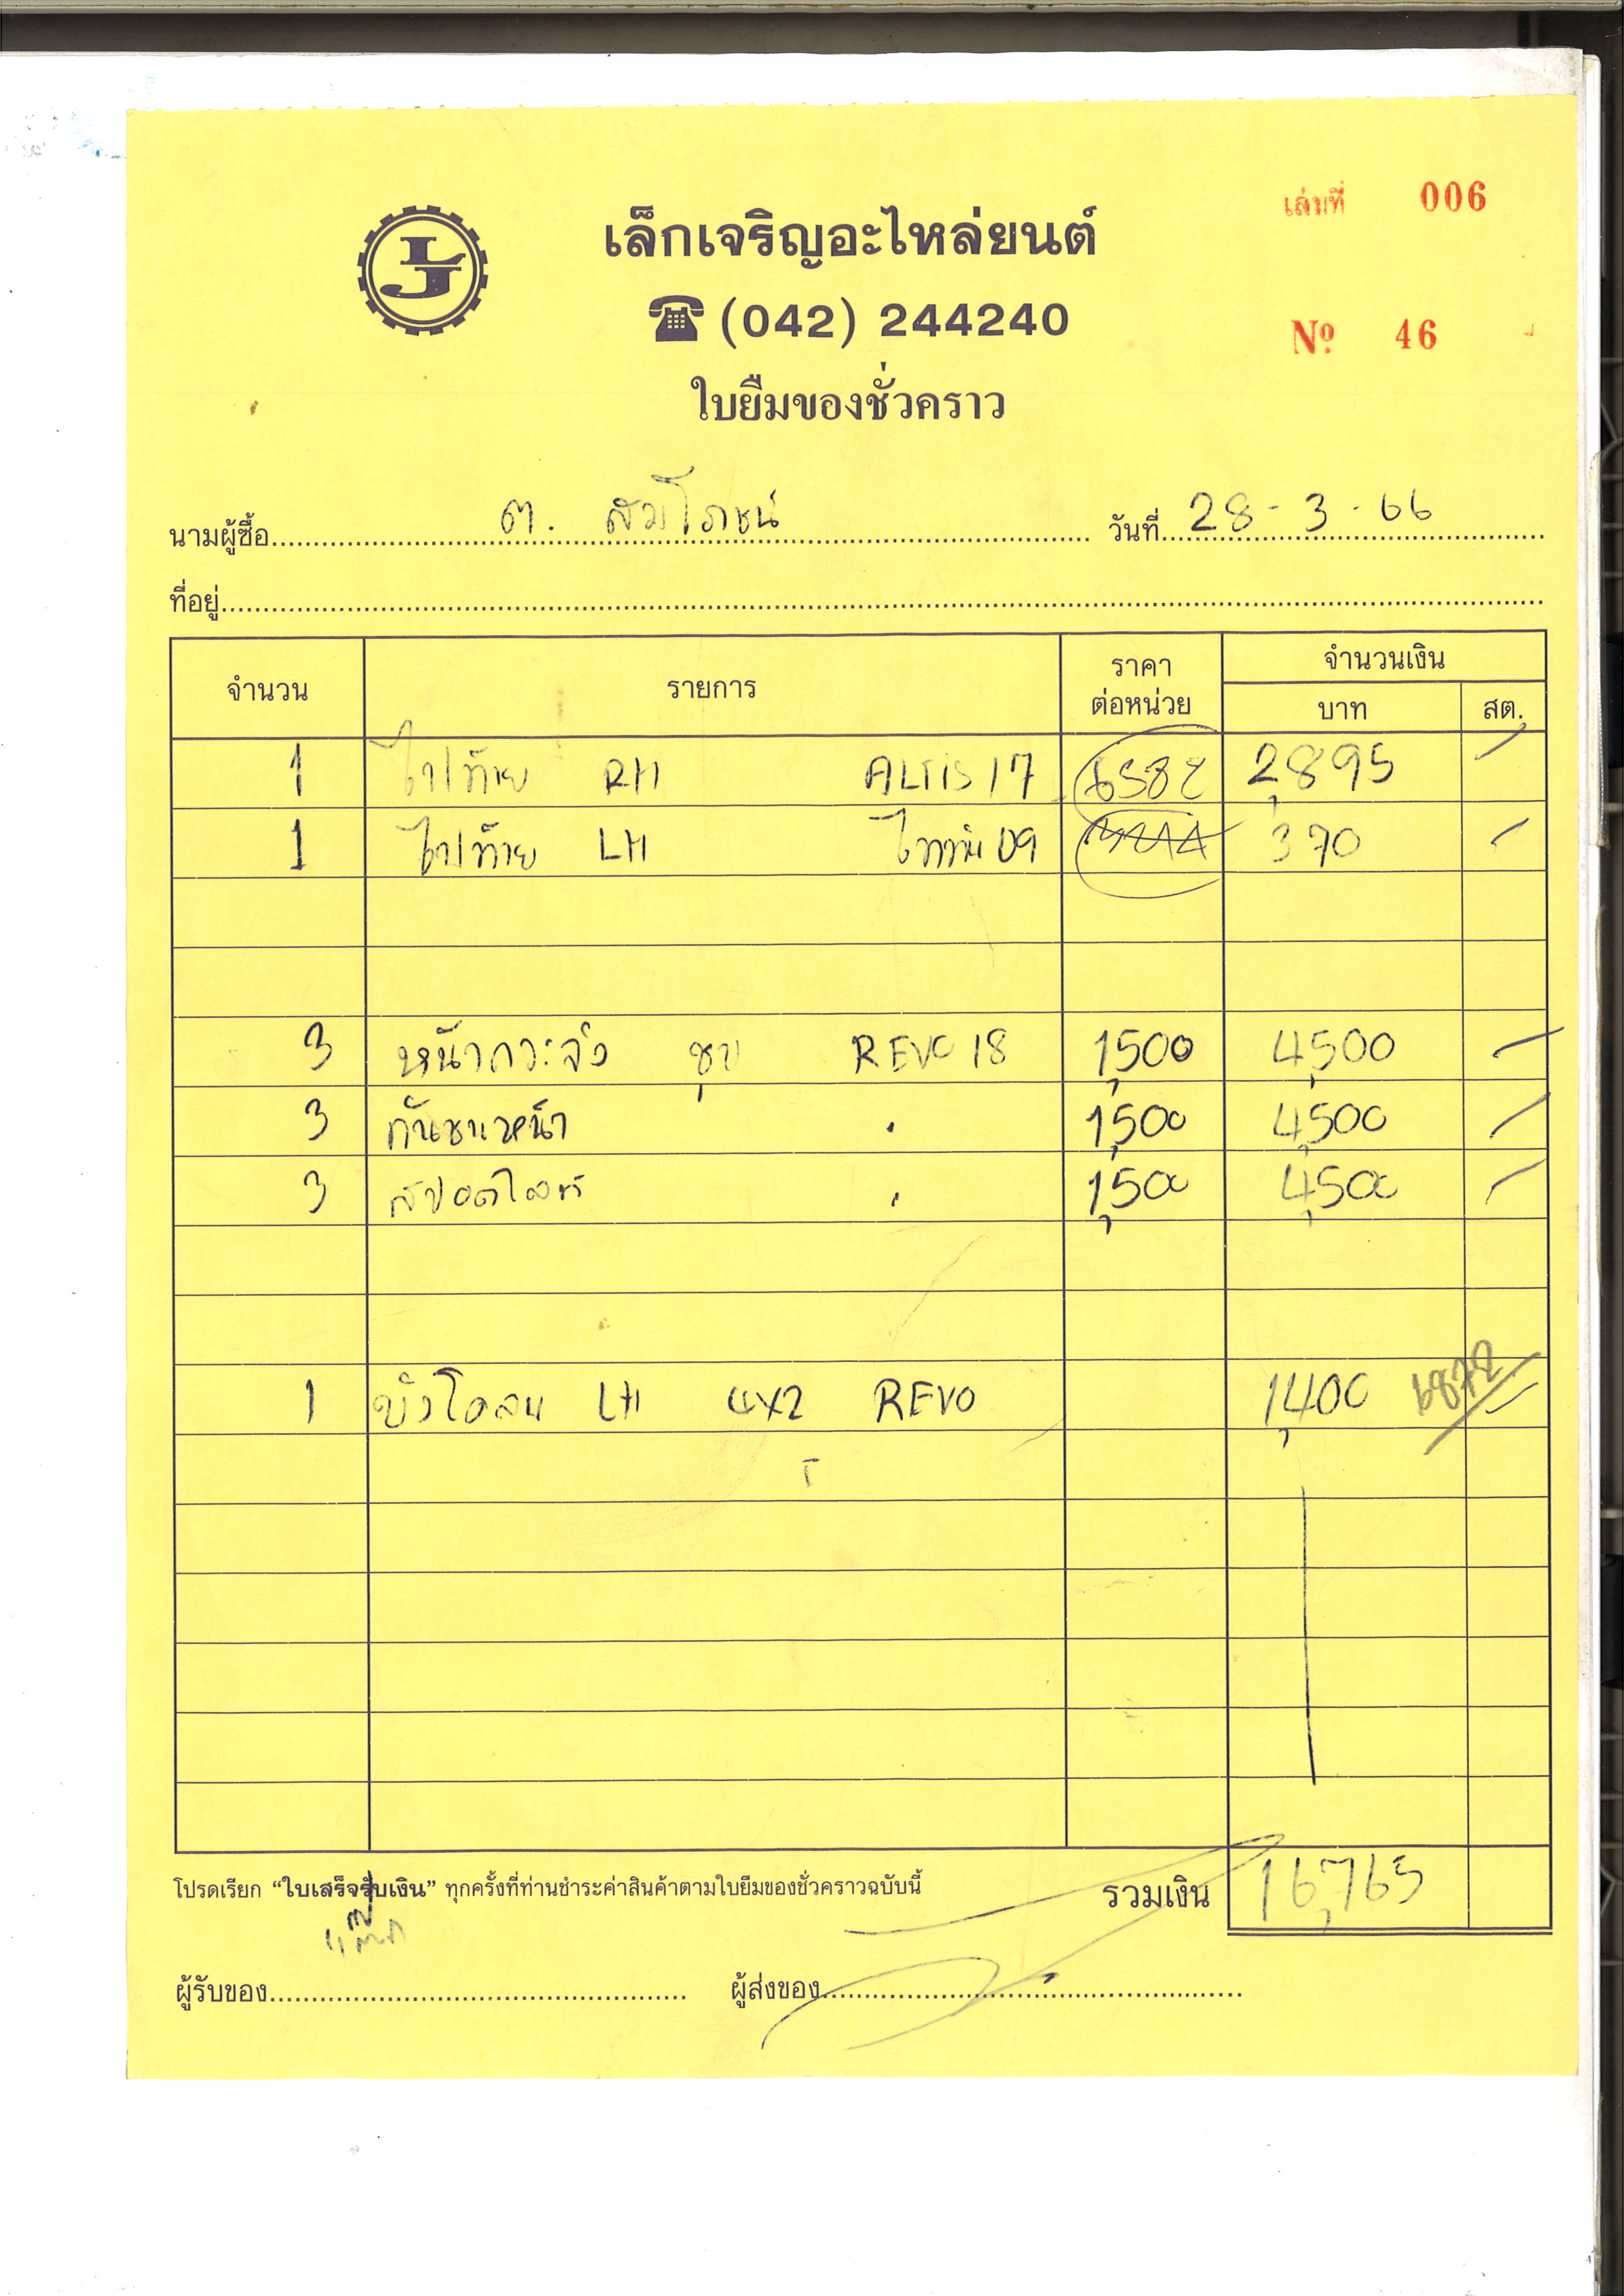 เล่มที่ 006
LJ
เล็กเจริญอะไหล่ยนต์
(042) 244240
Nº 46
ใบยืมของชั่วคราว
นามผู้ซื้อ ต. สมโภชน์ วันที่ 28-3-66
ที่อยู่
จำนวน รายการ ราคาต่อหน่วย จำนวนเงิน
บาท สต.
1 ไฟท้าย RH ALTIS 17 6582 2,895 -
1 ไฟท้าย LH ไททัน 09 370 -
3 หน้ากระจัง ชุบ REVO 18 1,500 4,500 -
3 กันชนหน้า " 1,500 4,500 -
3 สปอตไลท์ " 1,500 4,500 -
1 บังโคลน LH 4x2 REVO 1,400 - 6872
โปรดเรียก “ใบเสร็จรับเงิน” ทุกครั้งที่ท่านชำระค่าสินค้าตามใบยืมของชั่วคราวฉบับนี้ รวมเงิน 16,765
ผู้รับของ ผู้ส่งของ